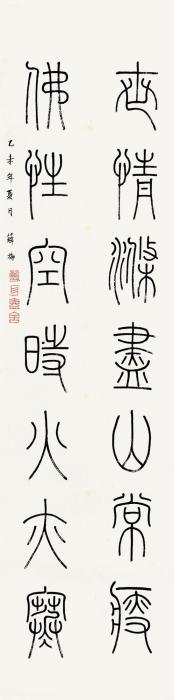 世情滌盡山常瘦
佛性空時火亦寒
乙未年夏月